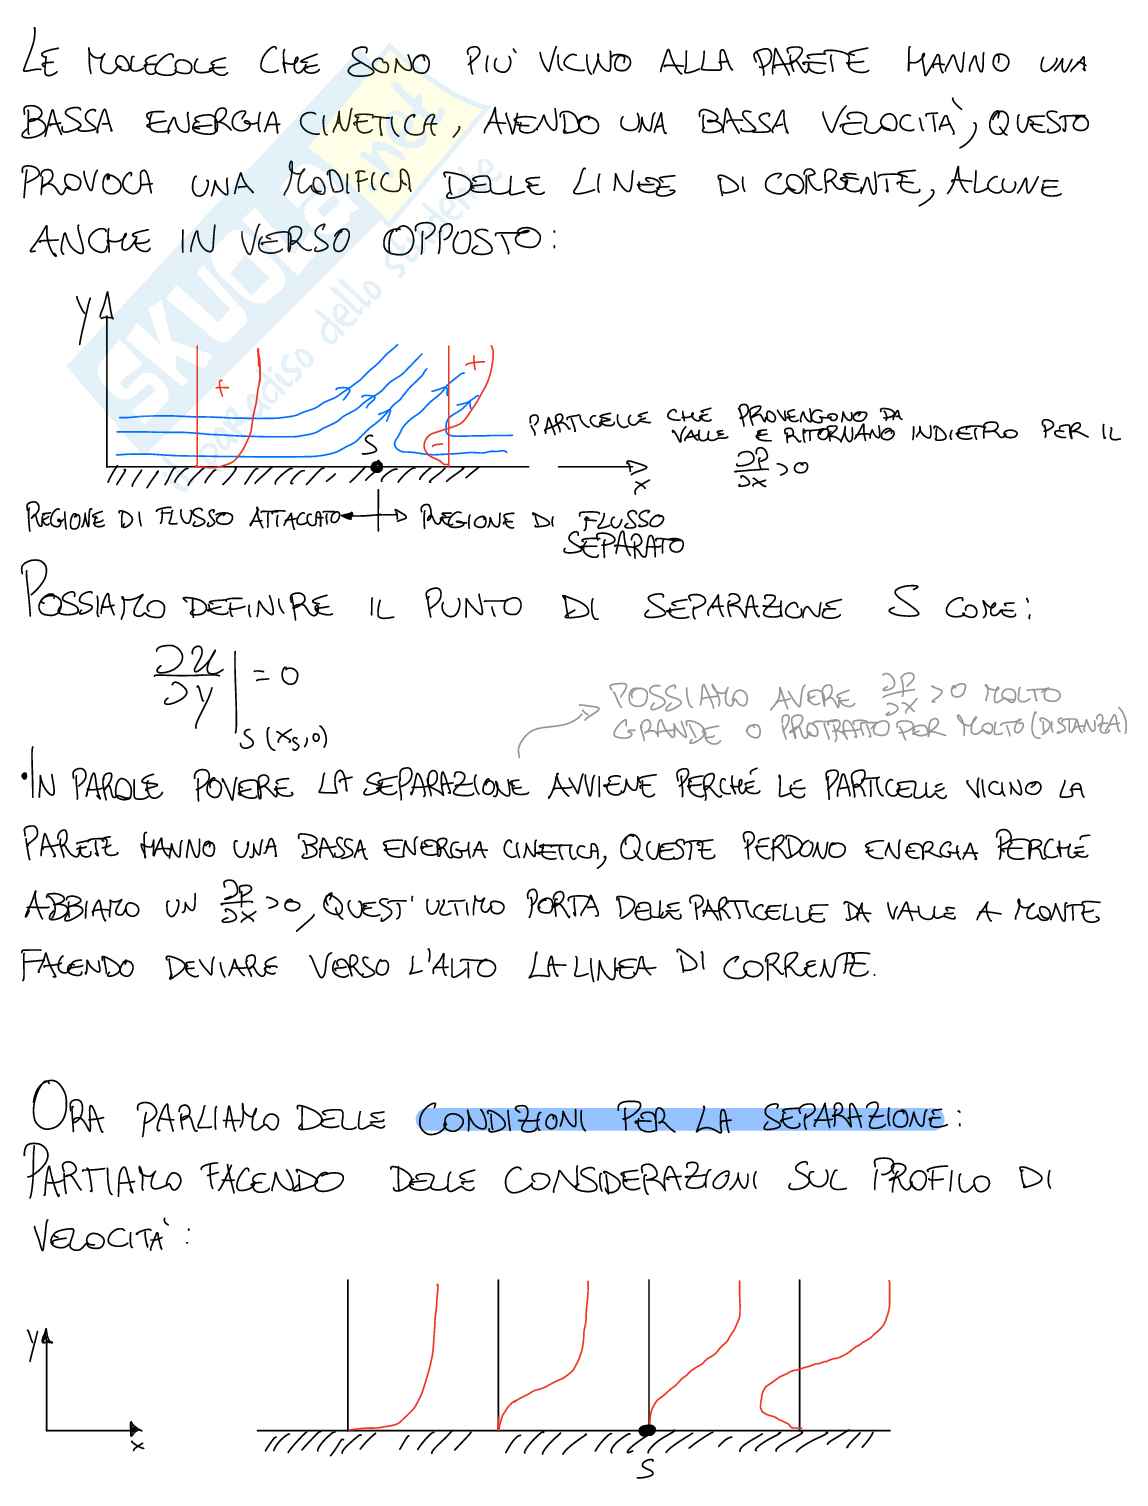 LE MOLECOLE CHE SONO PIÙ VICINO ALLA PARETE HANNO UNA
BASSA ENERGIA CINETICA, AVENDO UNA BASSA VELOCITÀ, QUESTO
PROVOCA UNA MODIFICA DELLE LINEE DI CORRENTE, ALCUNE
ANCHE IN VERSO OPPOSTO:
SKUOLA.net
il paradiso dello studente
y
+
+
-
S
PARTICELLE CHE PROVENGONO DA
VALLE E RITORNANO INDIETRO PER IL
∂P/∂x > 0
x
REGIONE DI FLUSSO ATTACCATO
REGIONE DI FLUSSO
SEPARATO
POSSIAMO DEFINIRE IL PUNTO DI SEPARAZIONE S COME:
∂u/∂y | = 0
S (xs,0)
POSSIAMO AVERE ∂P/∂x > 0 MOLTO
GRANDE O PROTRATTO PER MOLTO (DISTANZA)
•IN PAROLE POVERE LA SEPARAZIONE AVVIENE PERCHÉ LE PARTICELLE VICINO LA
PARETE HANNO UNA BASSA ENERGIA CINETICA, QUESTE PERDONO ENERGIA PERCHÉ
ABBIAMO UN ∂P/∂x > 0, QUEST'ULTIMO PORTA DELLE PARTICELLE DA VALLE A MONTE
FACENDO DEVIARE VERSO L'ALTO LA LINEA DI CORRENTE.
ORA PARLIAMO DELLE CONDIZIONI PER LA SEPARAZIONE:
PARTIAMO FACENDO DELLE CONSIDERAZIONI SUL PROFILO DI
VELOCITÀ:
y
x
S